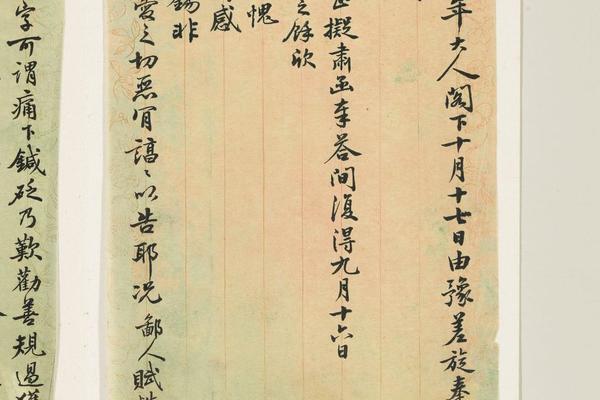 年大人閣下十月十七日由豫差旋奉
擬肅函奉答間復得九月十六日
之餘欣
愧
感
錫非
愛之切惡肎諄〻以告耶况鄙人賦
字可謂痛下鍼砭乃歎勸善規過